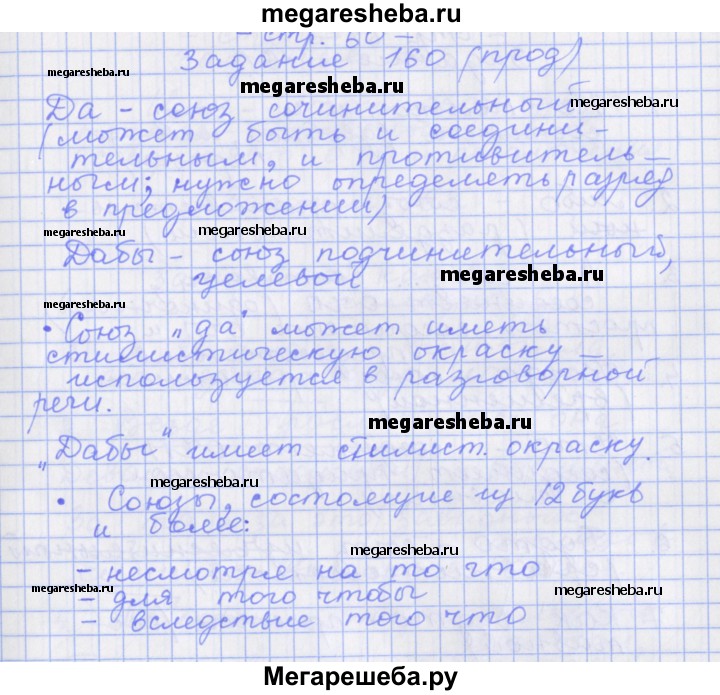 megaresheba.ru
- стр. 60 -
Задание 160 (прод)
megaresheba.ru
megaresheba.ru
megaresheba.ru
Да - союз сочинительный
(может быть и соедини -
тельным, и противитель -
ным; нужно определять разряд
в предложении)
megaresheba.ru
megaresheba.ru
Дабы - союз подчинительный,
целевой
megaresheba.ru
• Союз „да" может иметь
стилистическую окраску -
используется в разговорной
речи.
megaresheba.ru
„Дабы" имеет стилист. окраску.
megaresheba.ru
• Союзы, состоящие из 12 букв
и более:
megaresheba.ru
- несмотря на то что
megaresheba.ru
megaresheba.ru
- для того чтобы
- вследствие того что
Мегарешеба.ру